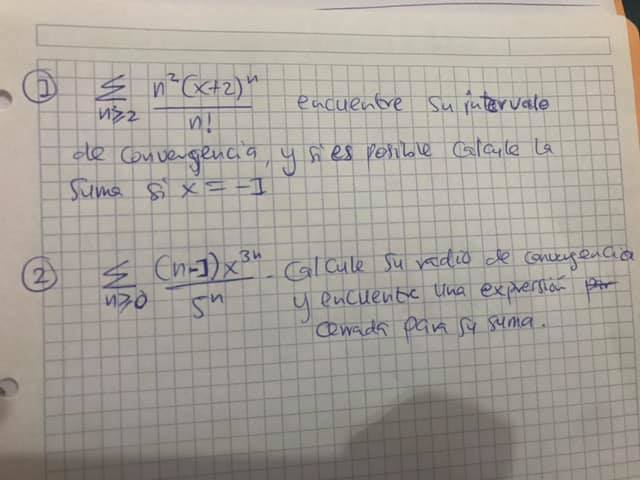 ① ∑ n≥2 n²(x+2)ⁿ / n! encuentre su intervalo
de convergencia, y si es posible calcule la
suma si x = -1
② ∑ n≥0 (n-1)x³ⁿ / 5ⁿ . Calcule su radio de convergencia
y encuentre una expresión
cerrada para su suma.